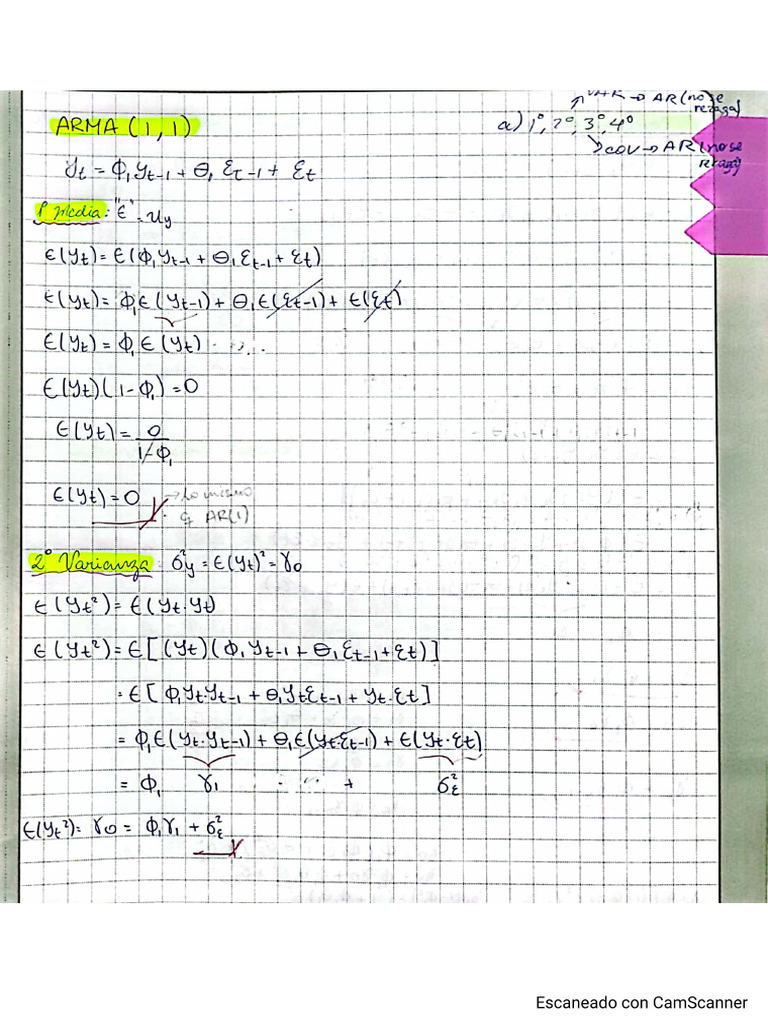 VAR → AR (no se rezaga)
ARMA (1,1)
a) 1°, 2°, 3°, 4°
COV → AR (no se
yt = ϕ1 yt-1 + θ1 εt-1 + εt
1° Media: "E" = uy
E(yt) = E(ϕ1 yt-1 + θ1 εt-1 + εt)
E(yt) = ϕ1 E(yt-1) + θ1 E(εt-1) + E(εt)
E(yt) = ϕ1 E(yt)
E(yt)(1-ϕ1) = 0
E(yt) = 0
1-ϕ1
E(yt) = 0 → Lo mismo
q AR(1)
2° Varianza: σ²y = E(yt)² = γ0
E(yt²) = E(yt.yt)
E(yt²) = E[(yt)(ϕ1 yt-1 + θ1 εt-1 + εt)]
= E[ϕ1 yt.yt-1 + θ1 yt εt-1 + yt.εt]
= ϕ1 E(yt.yt-1) + θ1 E(yt.εt-1) + E(yt.εt)
= ϕ1 γ1 + σ²ε
E(yt²) = γ0 = ϕ1 γ1 + σ²ε
Escaneado con CamScanner